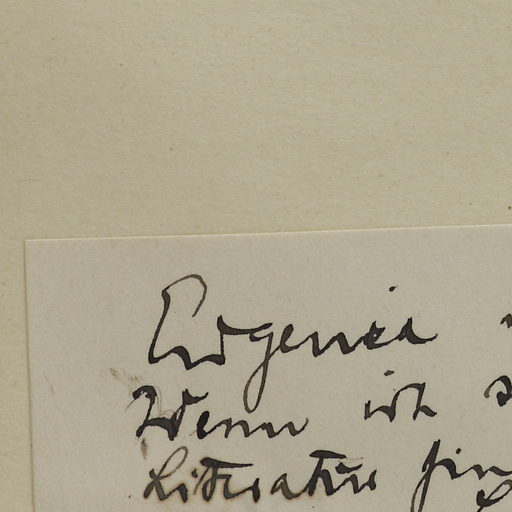 Eugenia
Wenn ich
Literatur